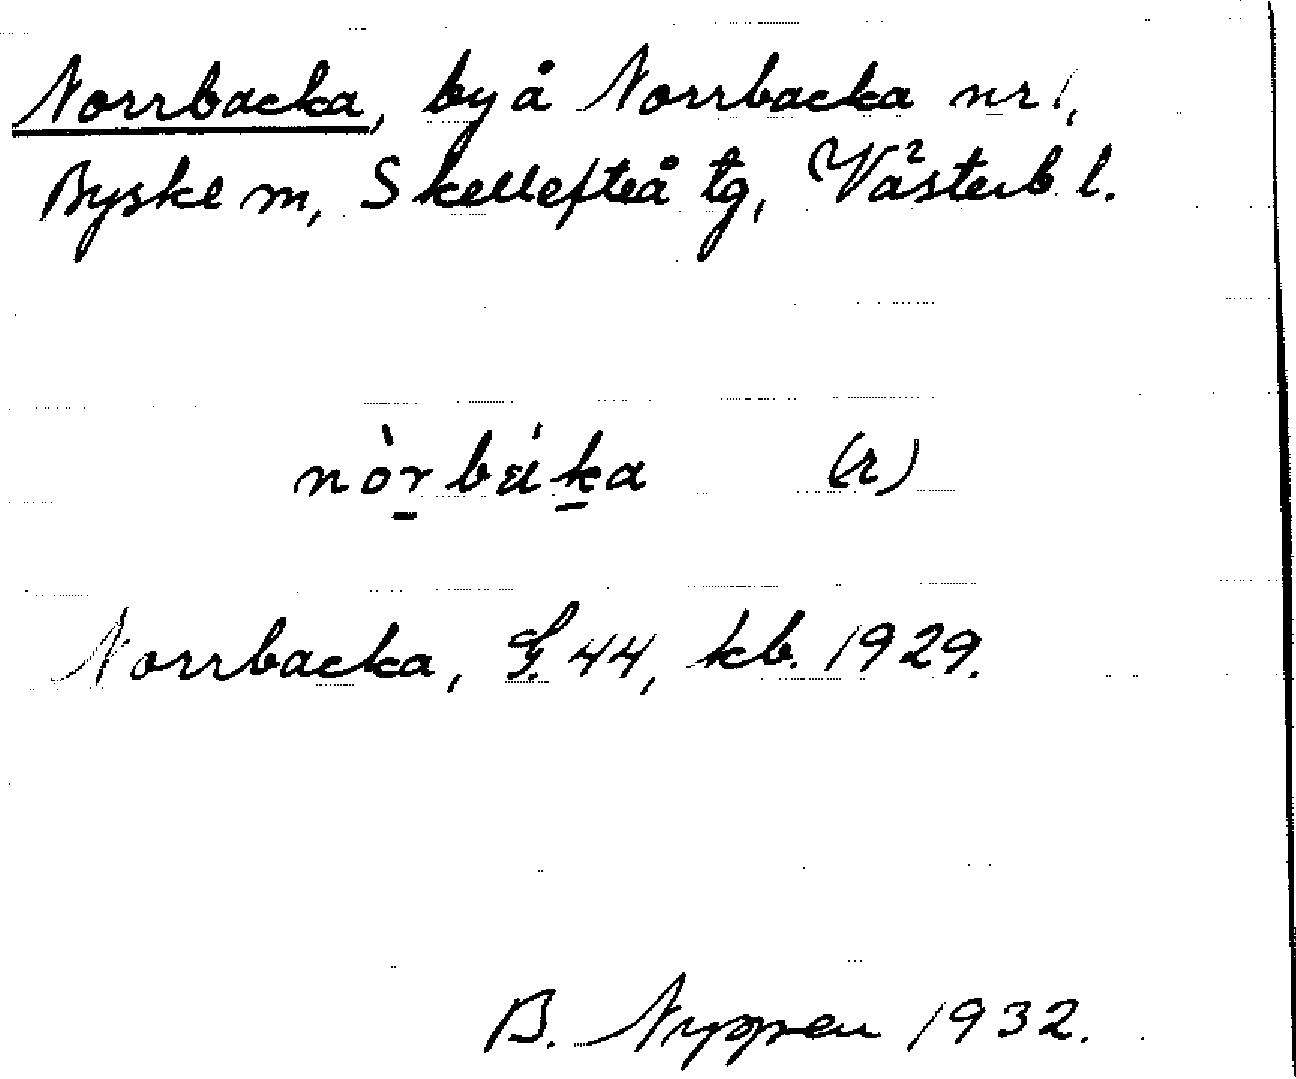 Norrbacka, by å Norrbacka nr 1,
Byske sn, Skellefteå tg, Västerb l.
nòrbáka (r)
Norrbacka, G. 44, kb. 1929.
B. Nyppen 1932.